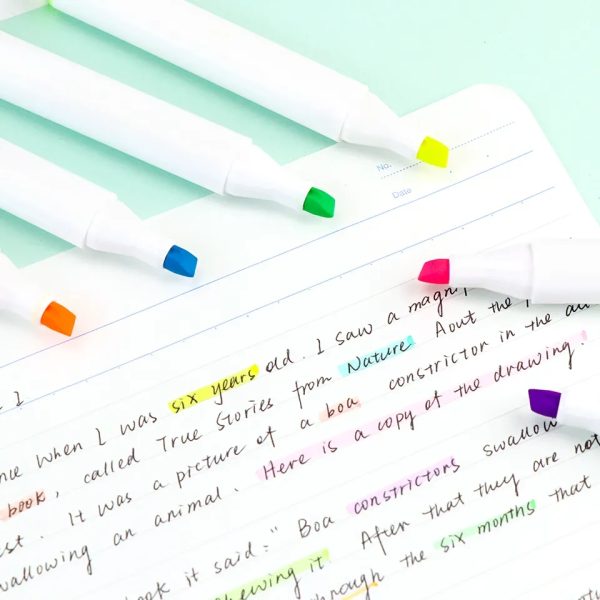 No.
Date
I
when I was six years old. I saw a
book, called True Stories from Nature Aout the
It was a picture of a boa constrictor in the
swallowing an animal. Here is a copy of the drawing.
book it said:" Boa constrictors swallow
chewing it. After that they are not
through the six months that